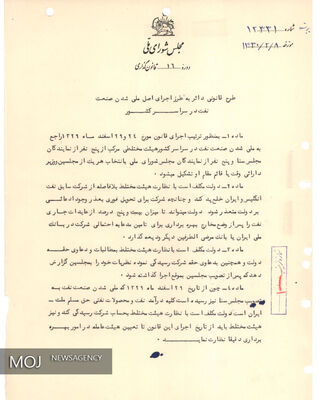 شماره ۱۲۳۳۱
مورخه ۱۳۳۱/۲/۸
مجلس شورای ملی
دوره ۱۶ قانونگذاری
طرح قانونی دائر به طرز اجرای اصل ملی شدن صنعت
نفت در سراسر کشور
ماده ۱ـ بمنظور ترتیب اجرای قانون مورخ ۲۴ و ۲۹ اسفند ماه ۱۳۲۹ راجع
به ملی شدن صنعت نفت در سراسر کشور هیئت مختلطی مرکب از پنج نفر از نمایندگان
مجلس سنا و پنج نفر از نمایندگان مجلس شورای ملی بانتخاب هر یک از مجلسین و وزیر
دارائی وقت یا قائم مقام او تشکیل میشود.
ماده ۲ـ دولت مکلف است با نظارت هیئت مختلط بلافاصله از شرکت سابق نفت
انگلیس و ایران خلع ید کند و چنانچه شرکت برای تحویل فوری بعذر وجود ادعائی
بر دولت متعذر شود دولت میتواند تا میزان بیست و پنج درصد از عایدات جاری
نفت را پس از وضع مخارج بهره برداری برای تامین مدعا به احتمالی شرکت در بانک
ملی ایران یا بانک مرضی الطرفین دیگر ودیعه گذارد.
ماده ۳ـ دولت مکلف است با نظارت هیئت مختلط بمطالبات و دعاوی حقه
دولت و همچنین بدعاوی حقه شرکت رسیدگی نموده نظریات خود را بمجلسین گزارش
دهد که پس از تصویب مجلسین بموقع اجرا گذاشته شود.
ماده ۴ـ چون از تاریخ ۲۹ اسفند ماه ۱۳۲۹ که ملی شدن صنعت نفت به
تصویب مجلس سنا نیز رسیده است کلیه درآمد نفت و محصولات نفتی حق مسلم ملت
ایران است دولت مکلف است با نظارت هیئت مختلط بحساب شرکت رسیدگی کند و نیز
هیئت مختلط باید از تاریخ اجرای این قانون تا تعیین هیئت عامله در امور بهره
برداری دقیقا نظارت نماید.
MOJ NEWSAGENCY